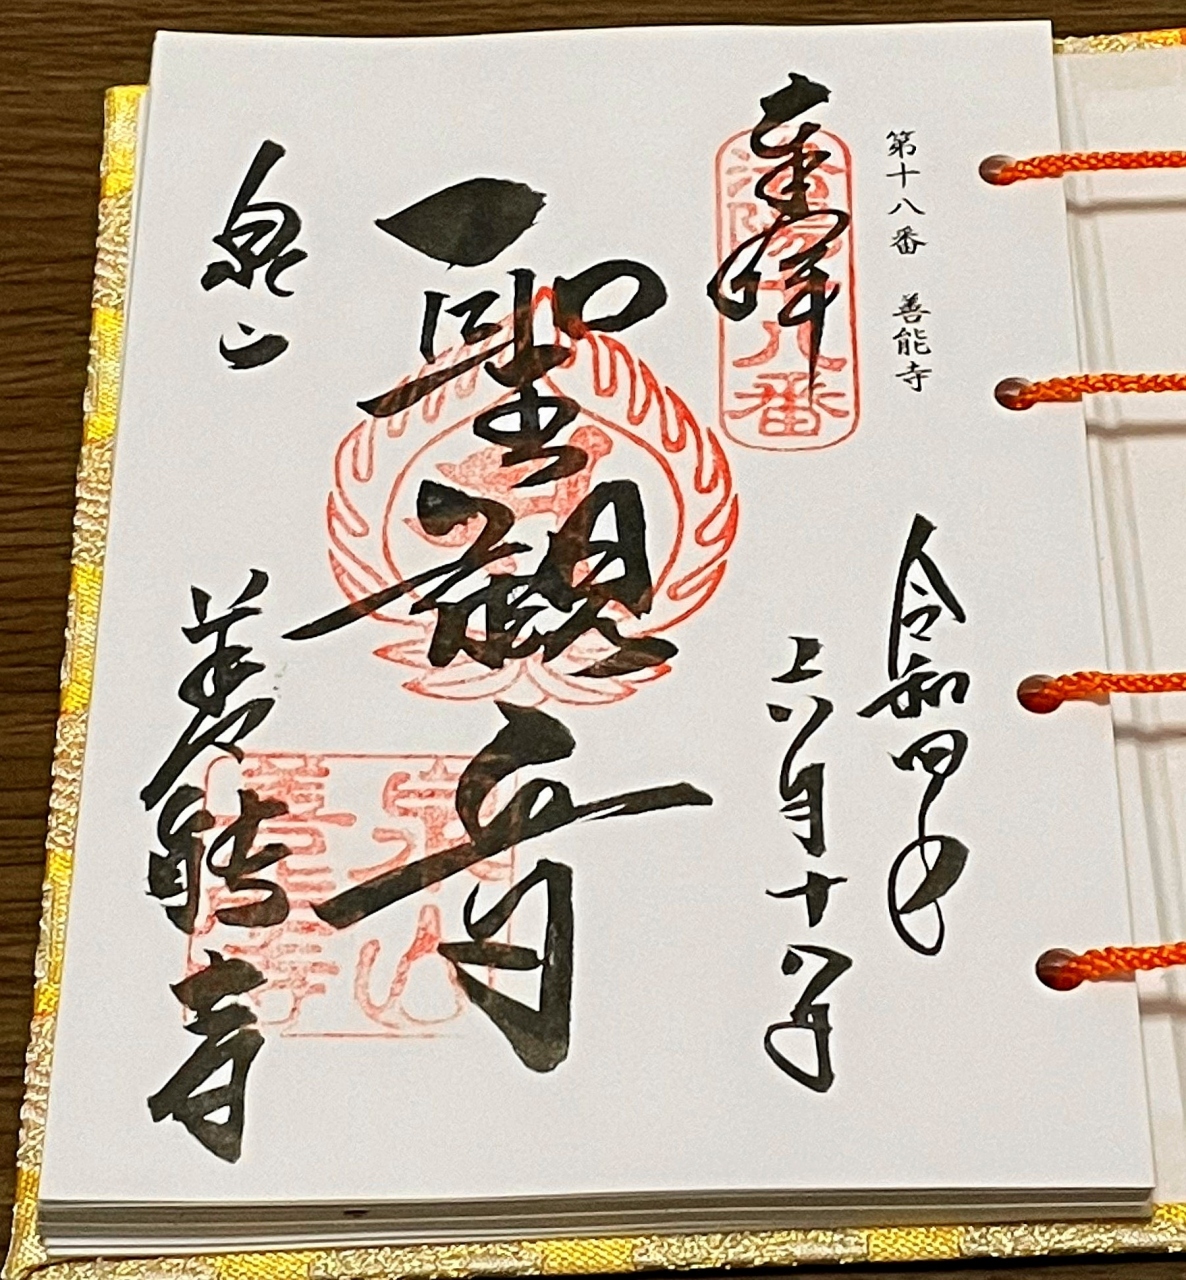 第十八番 善能寺
奉拝
洛陽十八番
令和四年
六月十八日
聖観音
泉山
善能寺
泉山
善能寺